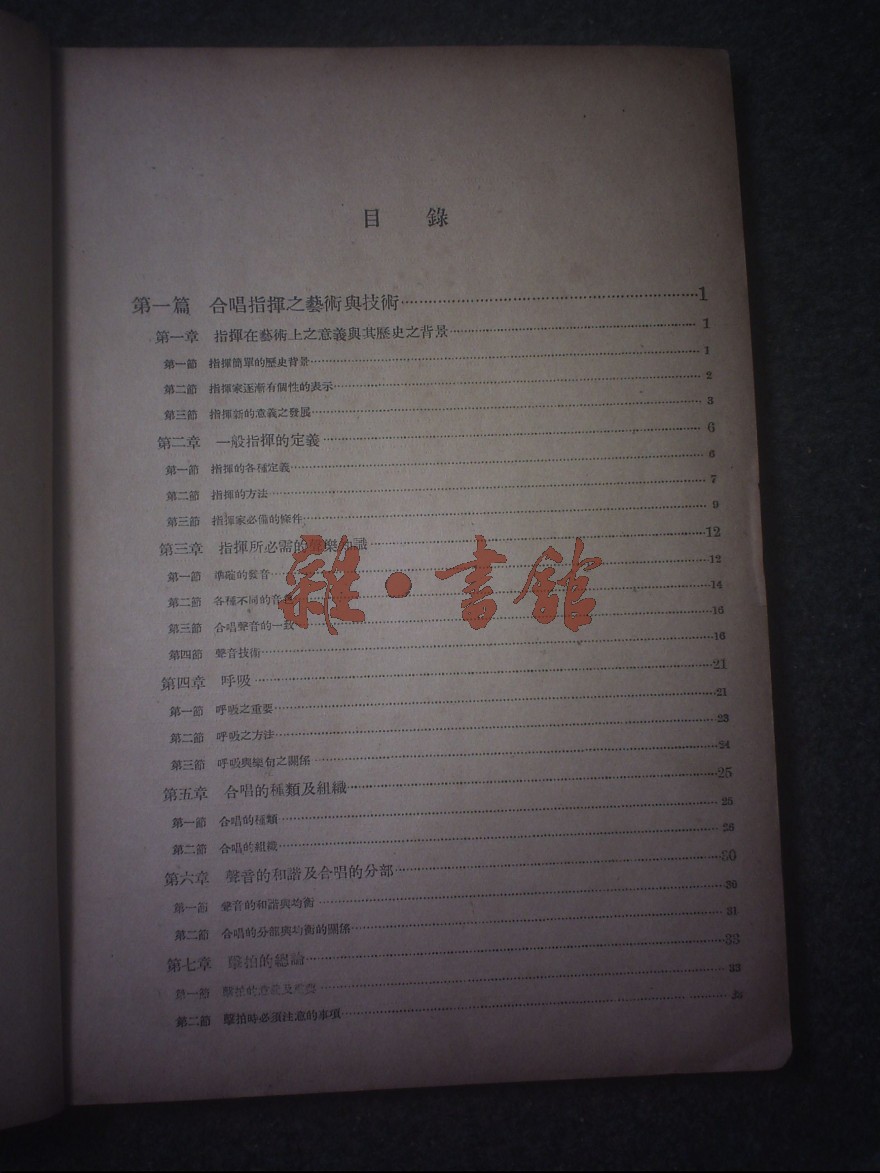 目 錄
第一篇 合唱指揮之藝術與技術 1
第一章 指揮在藝術上之意義與其歷史之背景 1
第一節 指揮簡單的歷史背景 1
第二節 指揮家逐漸有個性的表示 2
第三節 指揮新的意義之發展 3
第二章 一般指揮的定義 6
第一節 指揮的各種定義 6
第二節 指揮的方法 7
第三節 指揮家必備的條件 9
第三章 指揮所必需的聲樂知識 12
第一節 準確的發音 12
第二節 各種不同的音色 14
第三節 合唱聲音的一致 16
第四節 聲音技術 16
第四章 呼吸 21
第一節 呼吸之重要 21
第二節 呼吸之方法 23
第三節 呼吸與樂句之關係 24
第五章 合唱的種類及組織 25
第一節 合唱的種類 25
第二節 合唱的組織 28
第六章 聲音的和諧及合唱的分部 30
第一節 聲音的和諧與均衡 30
第二節 合唱的分部與均衡的關係 31
第七章 擊拍的總論 33
第一節 擊拍的意義及 33
第二節 擊拍時必須注意的事項
雜·書館